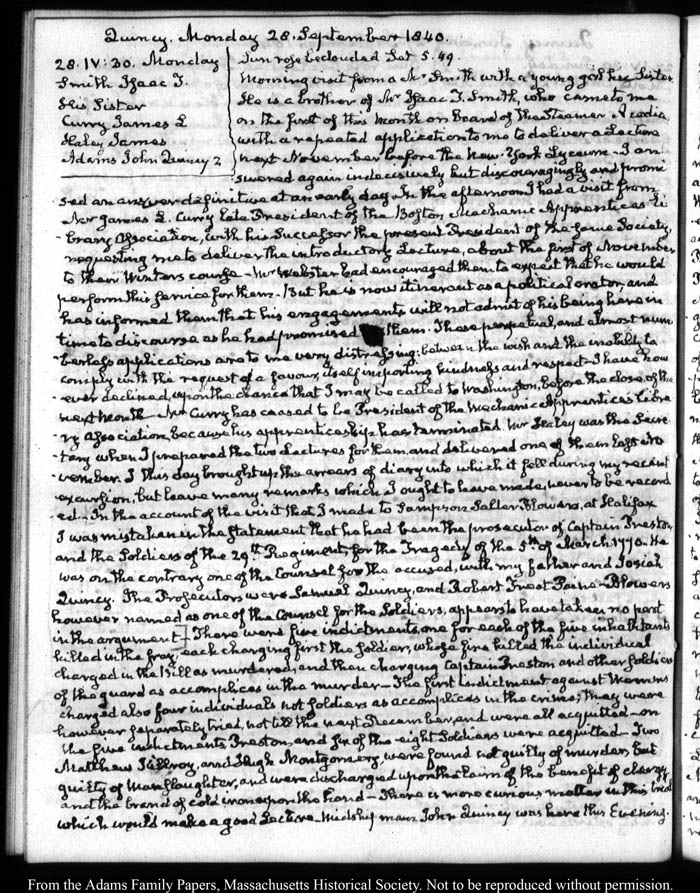 Quincy. Monday 28. September 1840.
28. IV: 30. Monday
Smith Isaac T.
His Sister
Curry James L
Haley James
Adams John Quincy 2
Sun rose beclouded Set 5.49.
Morning visit from a Mr Smith with a young girl his Sister
He is a brother of Mr Isaac T. Smith, who came to me
on the first of this month on board of the Steamer Acadia,
with a repeated application to me to deliver a Lecture
next November before the New-York Lyceum. I an-
swered again indecisively but discouragingly and promi-
sed an answer definitive at an early day. In the afternoon I had a visit from
Mr James L. Curry late President of the Boston Mechanic Apprentices Li-
brary Association, with his Successor the present President of the same Society,
requesting me to deliver the introductory Lecture, about the first of November
to their Winters course - Mr Webster had encouraged them to expect that he would
perform this service for them - But he is now itinerant as a political orator, and
has informed them that his engagements will not admit of his being here in
time to discourse as he had promised them. These perpetual, and almost num-
berless applications are to me very distressing: between the wish and the inability to
comply with the request of a favour, itself importing kindness and respect - I have how-
ever declined, upon the chance that I may be called to Washington, before the close of the
next month - Mr Curry has ceased to be President of the Mechanic Apprentices Libra-
ry Association, because his apprenticeship has terminated. Mr Haley was the Secre-
tary when I prepared the two Lectures for them, and delivered one of them last No-
vember. I this day brought up the arrears of diary into which it fell during my recent
excursion, but leave many remarks which I ought to have made, never to be record-
ed - In the account of the visit that I made to Sampson Salter Blowers, at Halifax
I was mistaken in the statement that he had been the prosecutor of Captain Preston,
and the Soldiers of the 29th Regiment, for the Tragedy of the 5th of March 1770. He
was on the contrary one of the Counsel for the accused, with my father and Josiah
Quincy. The Prosecutors were Samuel Quincy, and Robert Treat Paine - Blowers
however named as one of the Counsel for the Soldiers, appears to have taken no part
in the argument - There were five indictments, one for each of the five inhabitants
killed in the fray, each charging first the Soldier, whose fire killed the individual
charged in the Bill as murdered, and then charging Captain Preston and other soldiers
of the guard as accomplices in the murder - The first Indictment against Warren's
charged also four individuals not Soldiers as accomplices in the crime; they were
however separately tried, not till the next December, and were all acquitted - on
the five indictments Preston, and six of the eight Soldiers were acquitted - Two
Matthew Killroy, and Hugh Montgomery, were found not guilty of murder, but
guilty of Manslaughter, and were discharged upon the claim of the benefit of clergy,
and the brand of cold iron upon the hand - There is more curious matter in this trial
which would make a good Lecture. Midshipman John Quincy was here this Evening.
From the Adams Family Papers, Massachusetts Historical Society. Not to be reproduced without permission.